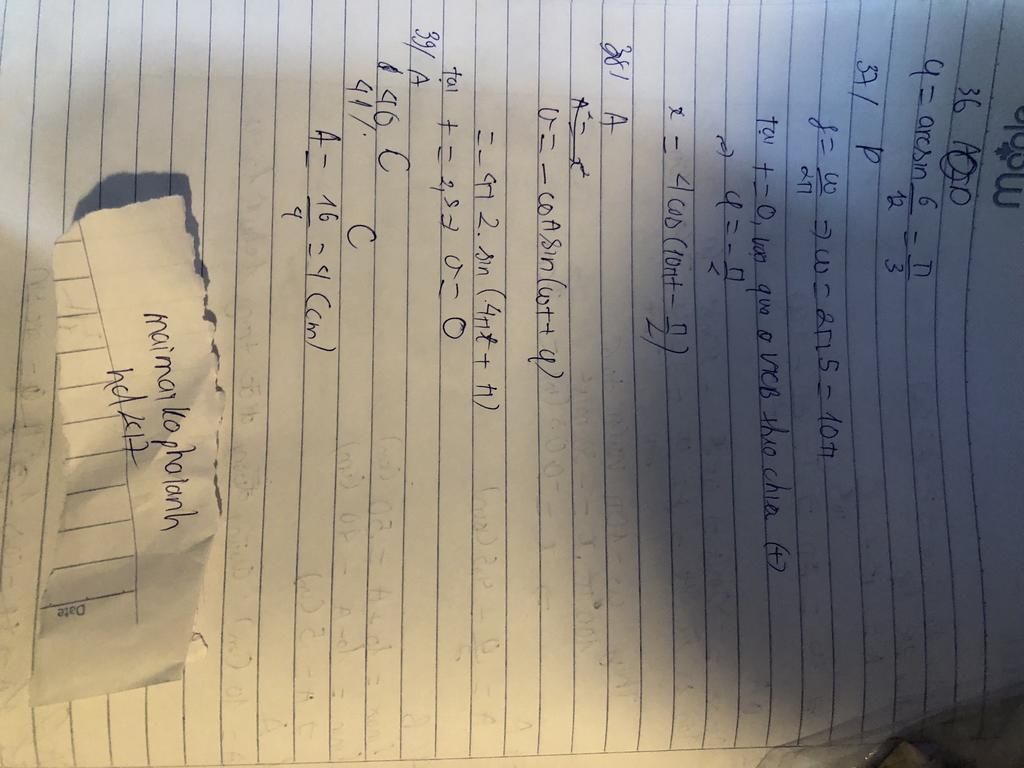 36
φ = arcsin 6/12 = π/3
37/ D
f = ω/2π => ω = 2π.5 = 10π
tại t = 0, vật qua O VTCB theo chiều (+)
=> φ = -π/2
x = 4cos(10πt - π/2)
38/ A
v = -ωA sin(ωt + φ)
= -4π 2. sin(4πt + π)
tại t = 2,5 => v = 0
39/ A
40, C
41/. C
A = 16/4 = 4 (cm)
maimaikophaianh
hd/ct7
Date